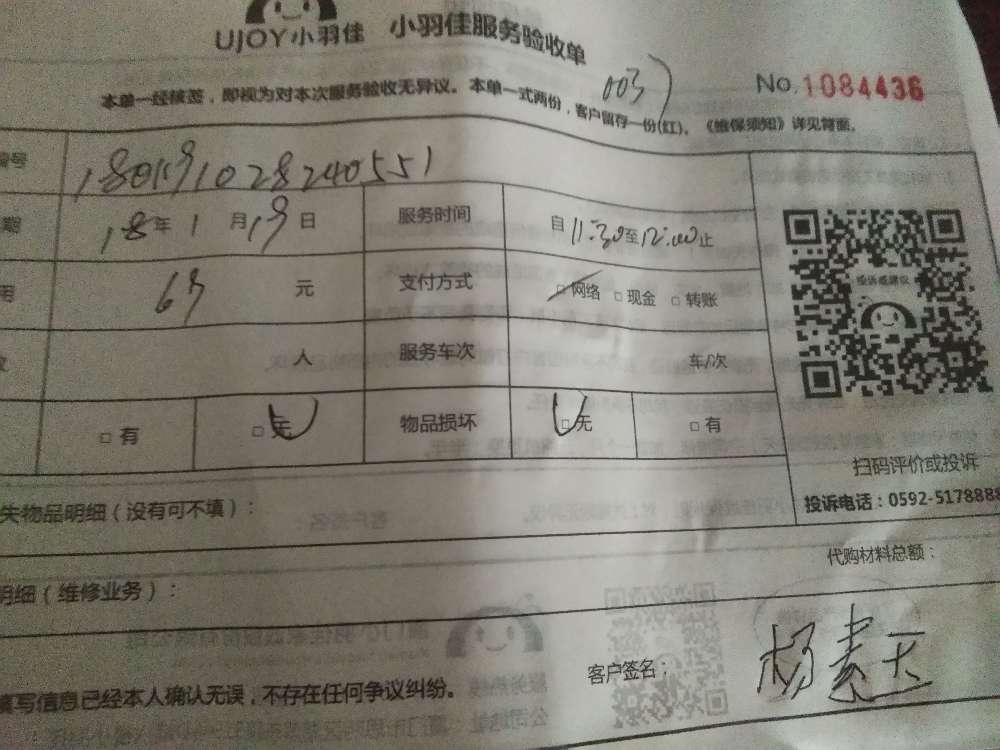 UJOY小羽佳 小羽佳服务验收单
本单一经核签，即视为对本次服务验收无异议。本单一式两份，客户留存一份(红)。《维保须知》详见背面。
003
No.1084436
编号 180119102824055 1
期 18年1月19日 服务时间 自11:30至12:00止
用 元 支付方式 □网络 □现金 □转账
人 服务车次 车/次
□有 □无 物品损坏 □无 □有
扫码评价或投诉
投诉电话：0592-5178888
失物品明细（没有可不填）：
代购材料总额：
明细（维修业务）：
填写信息已经本人确认无误，不存在任何争议纠纷。
客户签名：杨素玉
投诉或建议